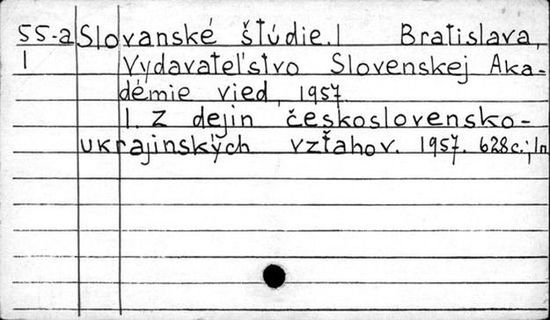 55-a Slovanské štúdie. I Bratislava,
1 Vydavateľstvo Slovenskej Aka-
démie vied, 1957
I. Z dejín československo-
ukrajinských vzťahov. 1957. 628c.; In